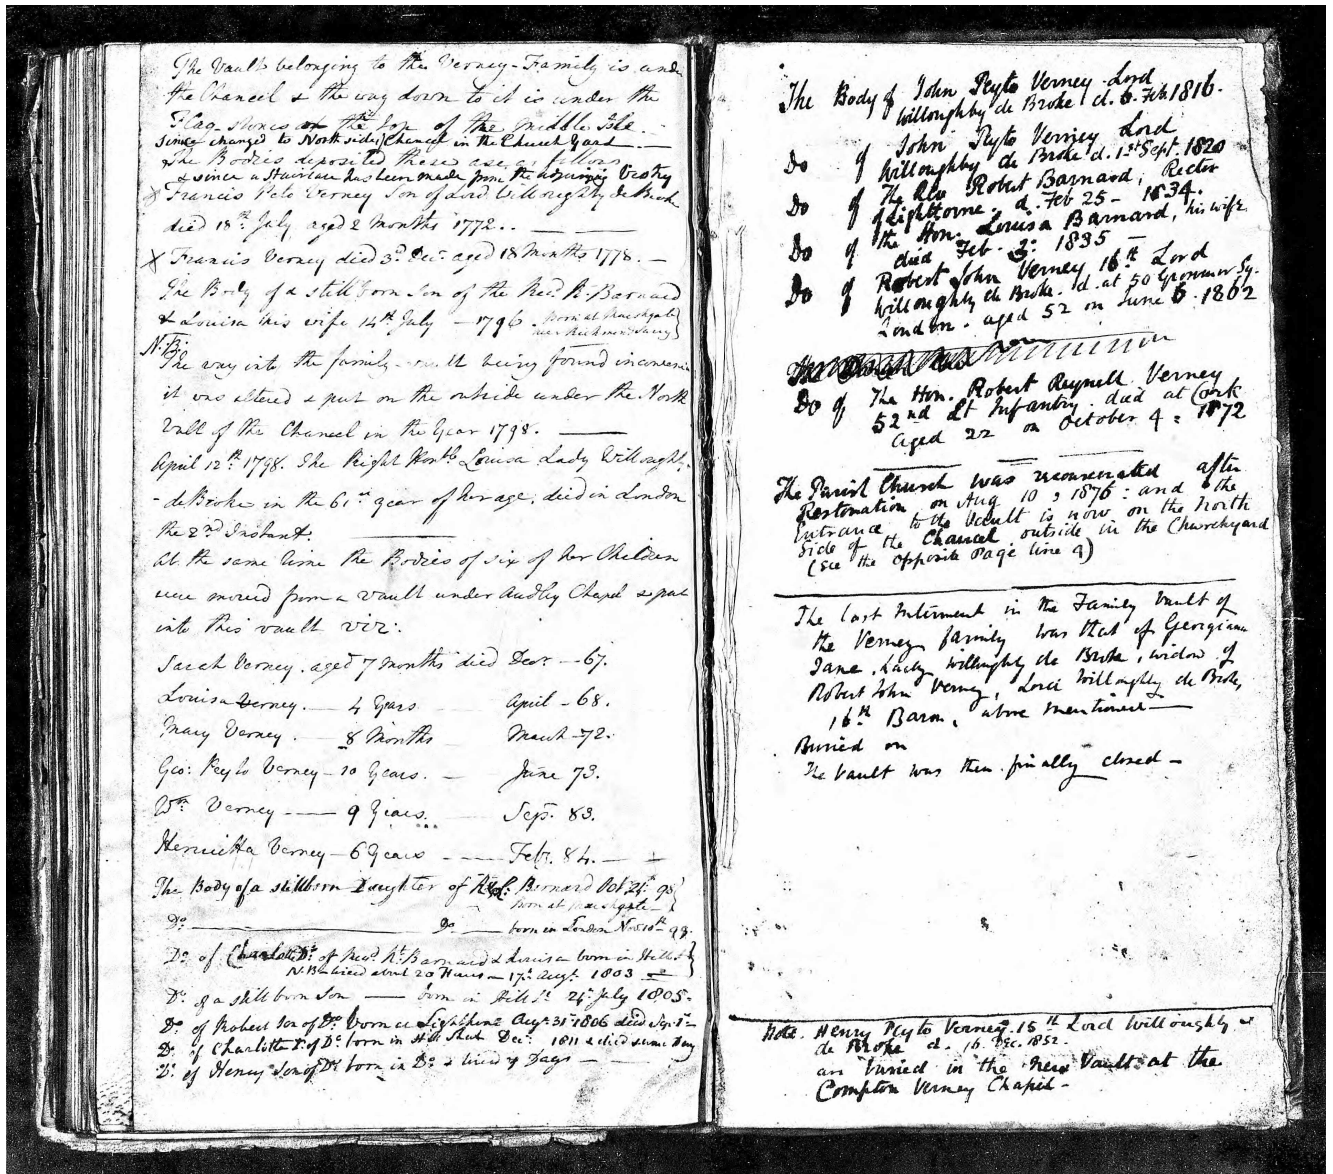 The Vault belonging to the Verney-Family is under
the Chancel & the way down to it is under the
Flag-stones at the top of the middle Isle.
since changed to North side of Chancel in the Church Yard
The Bodies deposited there are as follows
& since a Staircase has been made from the adjoining Vestry
X Francis Peto Verney Son of Lord Willoughby de Broke
died 18th July aged 2 Months 1772.
X Francis Verney died 3d Decr aged 18 Months 1778. —
The Body of a still born Son of the Revd R. Barnard
& Louisa his wife 14th July — 1796. born at Marshgate
near Richmond Surry}
N.B:
The way into the family-vault being found inconvenient
it was altered & put on the outside under the North
Wall of the Chancel in the Year 1798. —
April 12th 1798. The Right Honble Louisa Lady Willoughby
-de Broke in the 61st year of her age, died in London
the 2nd Instant.
At the same time the Bodies of six of her Children
were moved from a vault under Audley Chapel & put
into this vault viz:
Sarah Verney. aged 7 months died Decr — 67.
Louisa Verney. — 4 Years April — 68.
Mary Verney. — 8 Months March — 72.
Geo: Peyto Verney — 10 Years. — June 73.
Wm Verney — 9 Years. Sepr. 83.
Henrietta Verney — 6 Years — Febr. 84. —
The Body of a stillborn Daughter of R & L: Bernard Oct 24th 98}
born at Marshgate —
Do — Do — born in London Nov 10th 99.
Do of Charlotte Dr of Revd Rt Barnard & Louisa born in Hill St}
N.B. lived about 20 Hours — 17th Augt. 1803
Do of a still born Son — born in Hill St. 24 July 1805.
Do of Robert Son of Do born at Lighthorne Augt 31st 1806 died Sep. 1st —
Do of Charlotte D. of Do born in Hill Street Decr 1811 & died same Day
Do of Henry Son of Do born in Do & lived 9 Days —
The Body of John Peyto Verney Lord
Willoughby de Broke d. 6. Feb 1816.
Do of John Peyto Verney Lord
Willoughby de Broke d. 1st Sept. 1820
Do of The Rev Robert Barnard, Rector
of Lighthorne. d. Feb 25 — 1834.
Do of the Hon. Louisa Barnard, his wife
died Feb. 3: 1835
Do of Robert John Verney 16th Lord
Willoughby de Broke. d. at 50 Grosvenor Sq.
London. aged 52 on June 6. 1862
Do of The Hon. Robert Reynell Verney
52nd Lt Infantry. died at Cork
aged 22 on October 4 = 1872
The Parish Church was reconsecrated after
Restoration on Aug 10, 1876: and the
Entrance to the Vault is now on the North
Side of the Chancel outside in the Churchyard
(see the opposite Page line 4)
The last Interment in the Family Vault of
the Verney family was that of Georgiana
Jane, Lady Willoughby de Broke, widow of
Robert John Verney, Lord Willoughby de Broke,
16th Baron, above mentioned —
Buried on
The Vault was then finally closed —
Note. Henry Peyto Verney. 15th Lord Willoughby
de Broke d. 16. Dec. 1852.
are buried in the New Vault at the
Compton Verney Chapel —